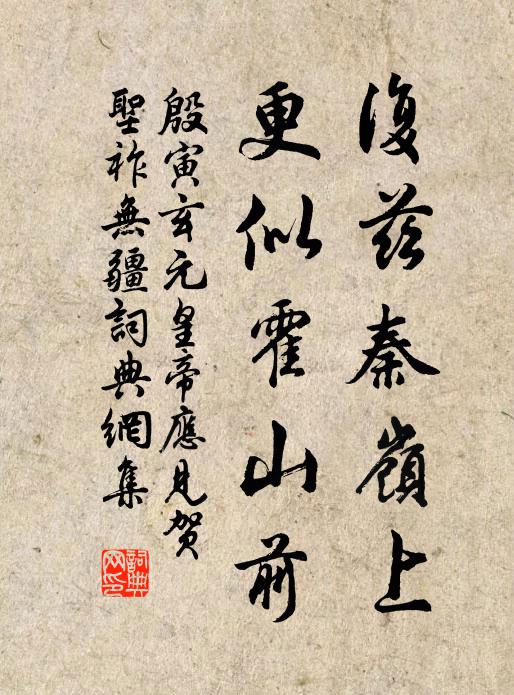 復茲秦嶺上
更似霍山前
殷寅玄元皇帝應見賀
聖祚無疆詞典網集
詞典
网印